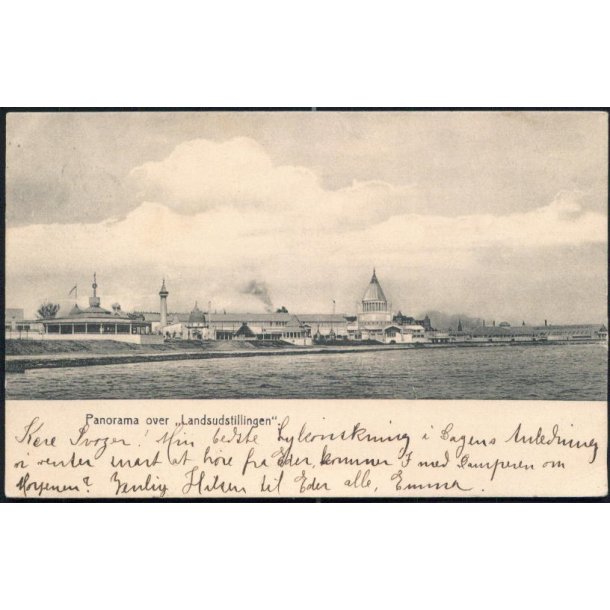 Panorama over „Landsudstillingen".
Kære Svoger! Min bedste Lykønskning i Dagens Anledning
vi venter snart at høre fra Eder, kommer I med Damperen om
Morgenen? Venlig Hilsen til Eder alle, Emma.